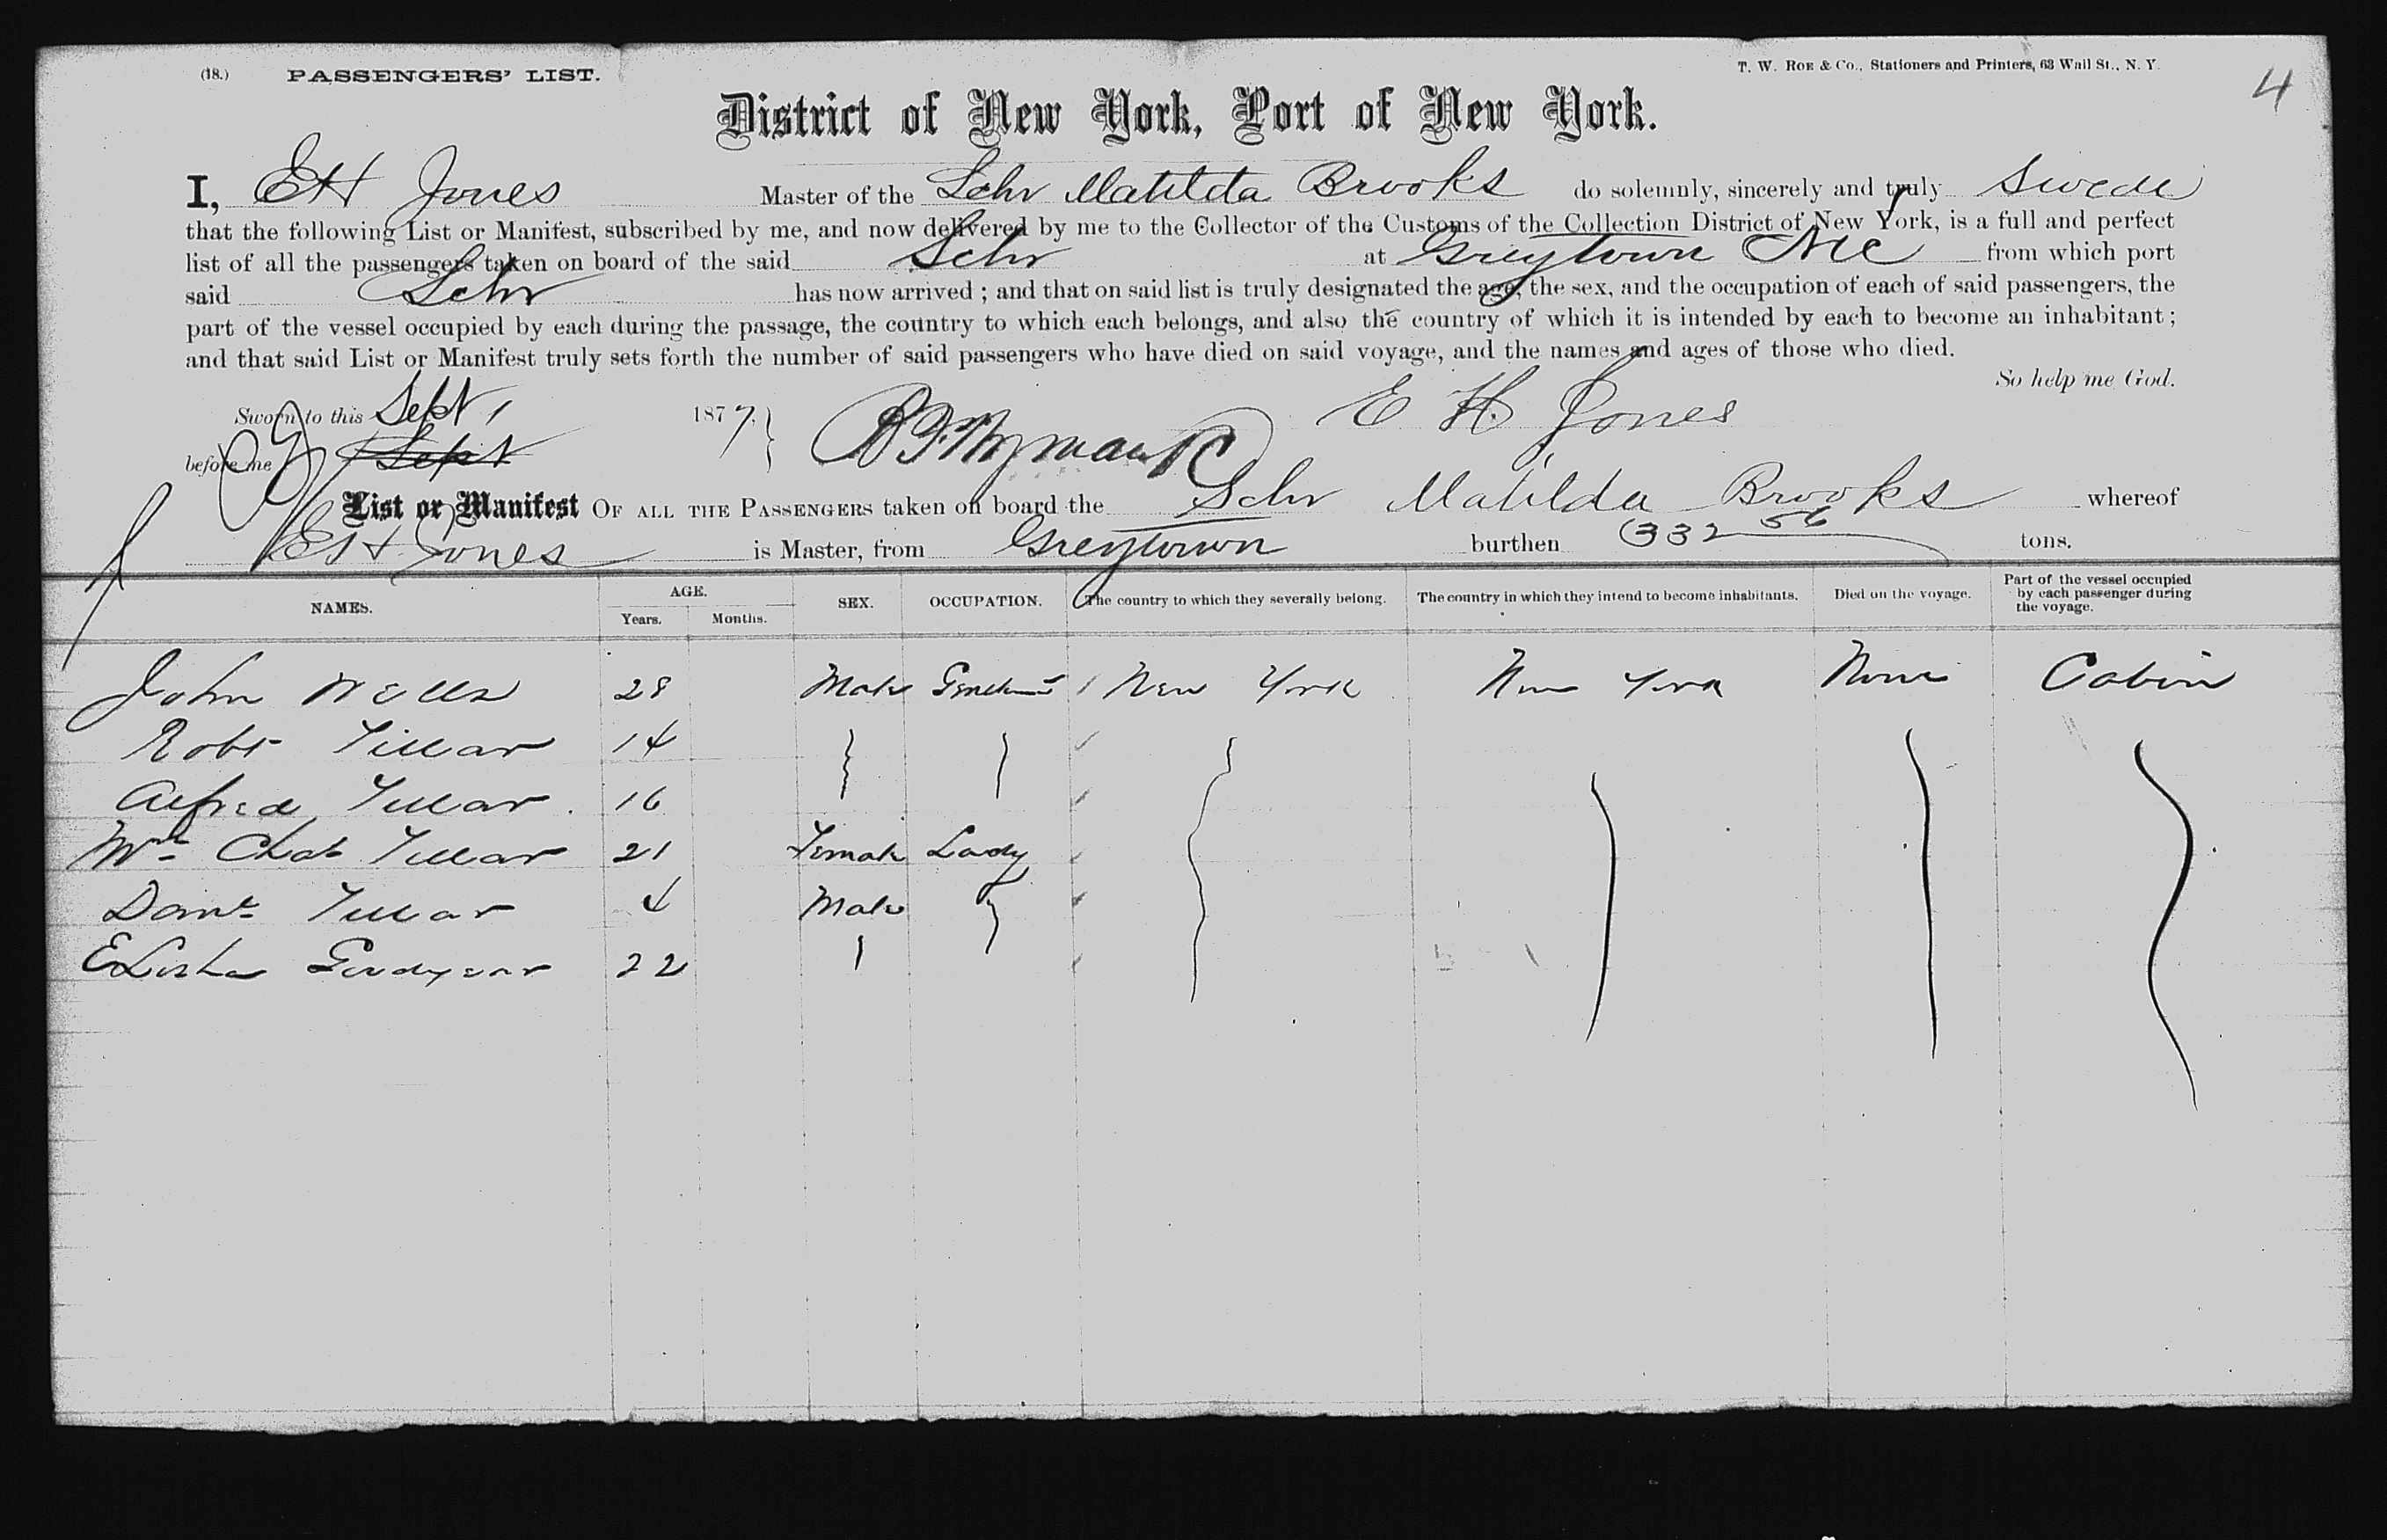 (18.) PASSENGERS' LIST. T. W. ROE & Co., Stationers and Printers, 63 Wall St., N. Y.
4
District of New York, Port of New York.
I, E H Jones Master of the Schr Matilda Brooks do solemnly, sincerely and truly Swear
that the following List or Manifest, subscribed by me, and now delivered by me to the Collector of the Customs of the Collection District of New York, is a full and perfect
list of all the passengers taken on board of the said Schr at Greytown Nic from which port
said Schr has now arrived ; and that on said list is truly designated the age, the sex, and the occupation of each of said passengers, the
part of the vessel occupied by each during the passage, the country to which each belongs, and also the country of which it is intended by each to become an inhabitant ;
and that said List or Manifest truly sets forth the number of said passengers who have died on said voyage, and the names and ages of those who died.
So help me God.
Sworn to this Sept 1 1877. E H. Jones
before me Sept
List or Manifest OF ALL THE PASSENGERS taken on board the Schr Matilda Brooks whereof
E H Jones is Master, from Greytown burthen 332 56 tons.
NAMES. AGE. Years. Months. SEX. OCCUPATION. The country to which they severally belong. The country in which they intend to become inhabitants. Died on the voyage. Part of the vessel occupied by each passenger during the voyage.
John Wells 28 Male Gentleman New York New York None Cabin
Robt Tillar 14
Alfred Tillar 16
Mrs Chat Tillar 21 Female Lady
Danl Tillar 4 Male
Elisha Goodyear 22